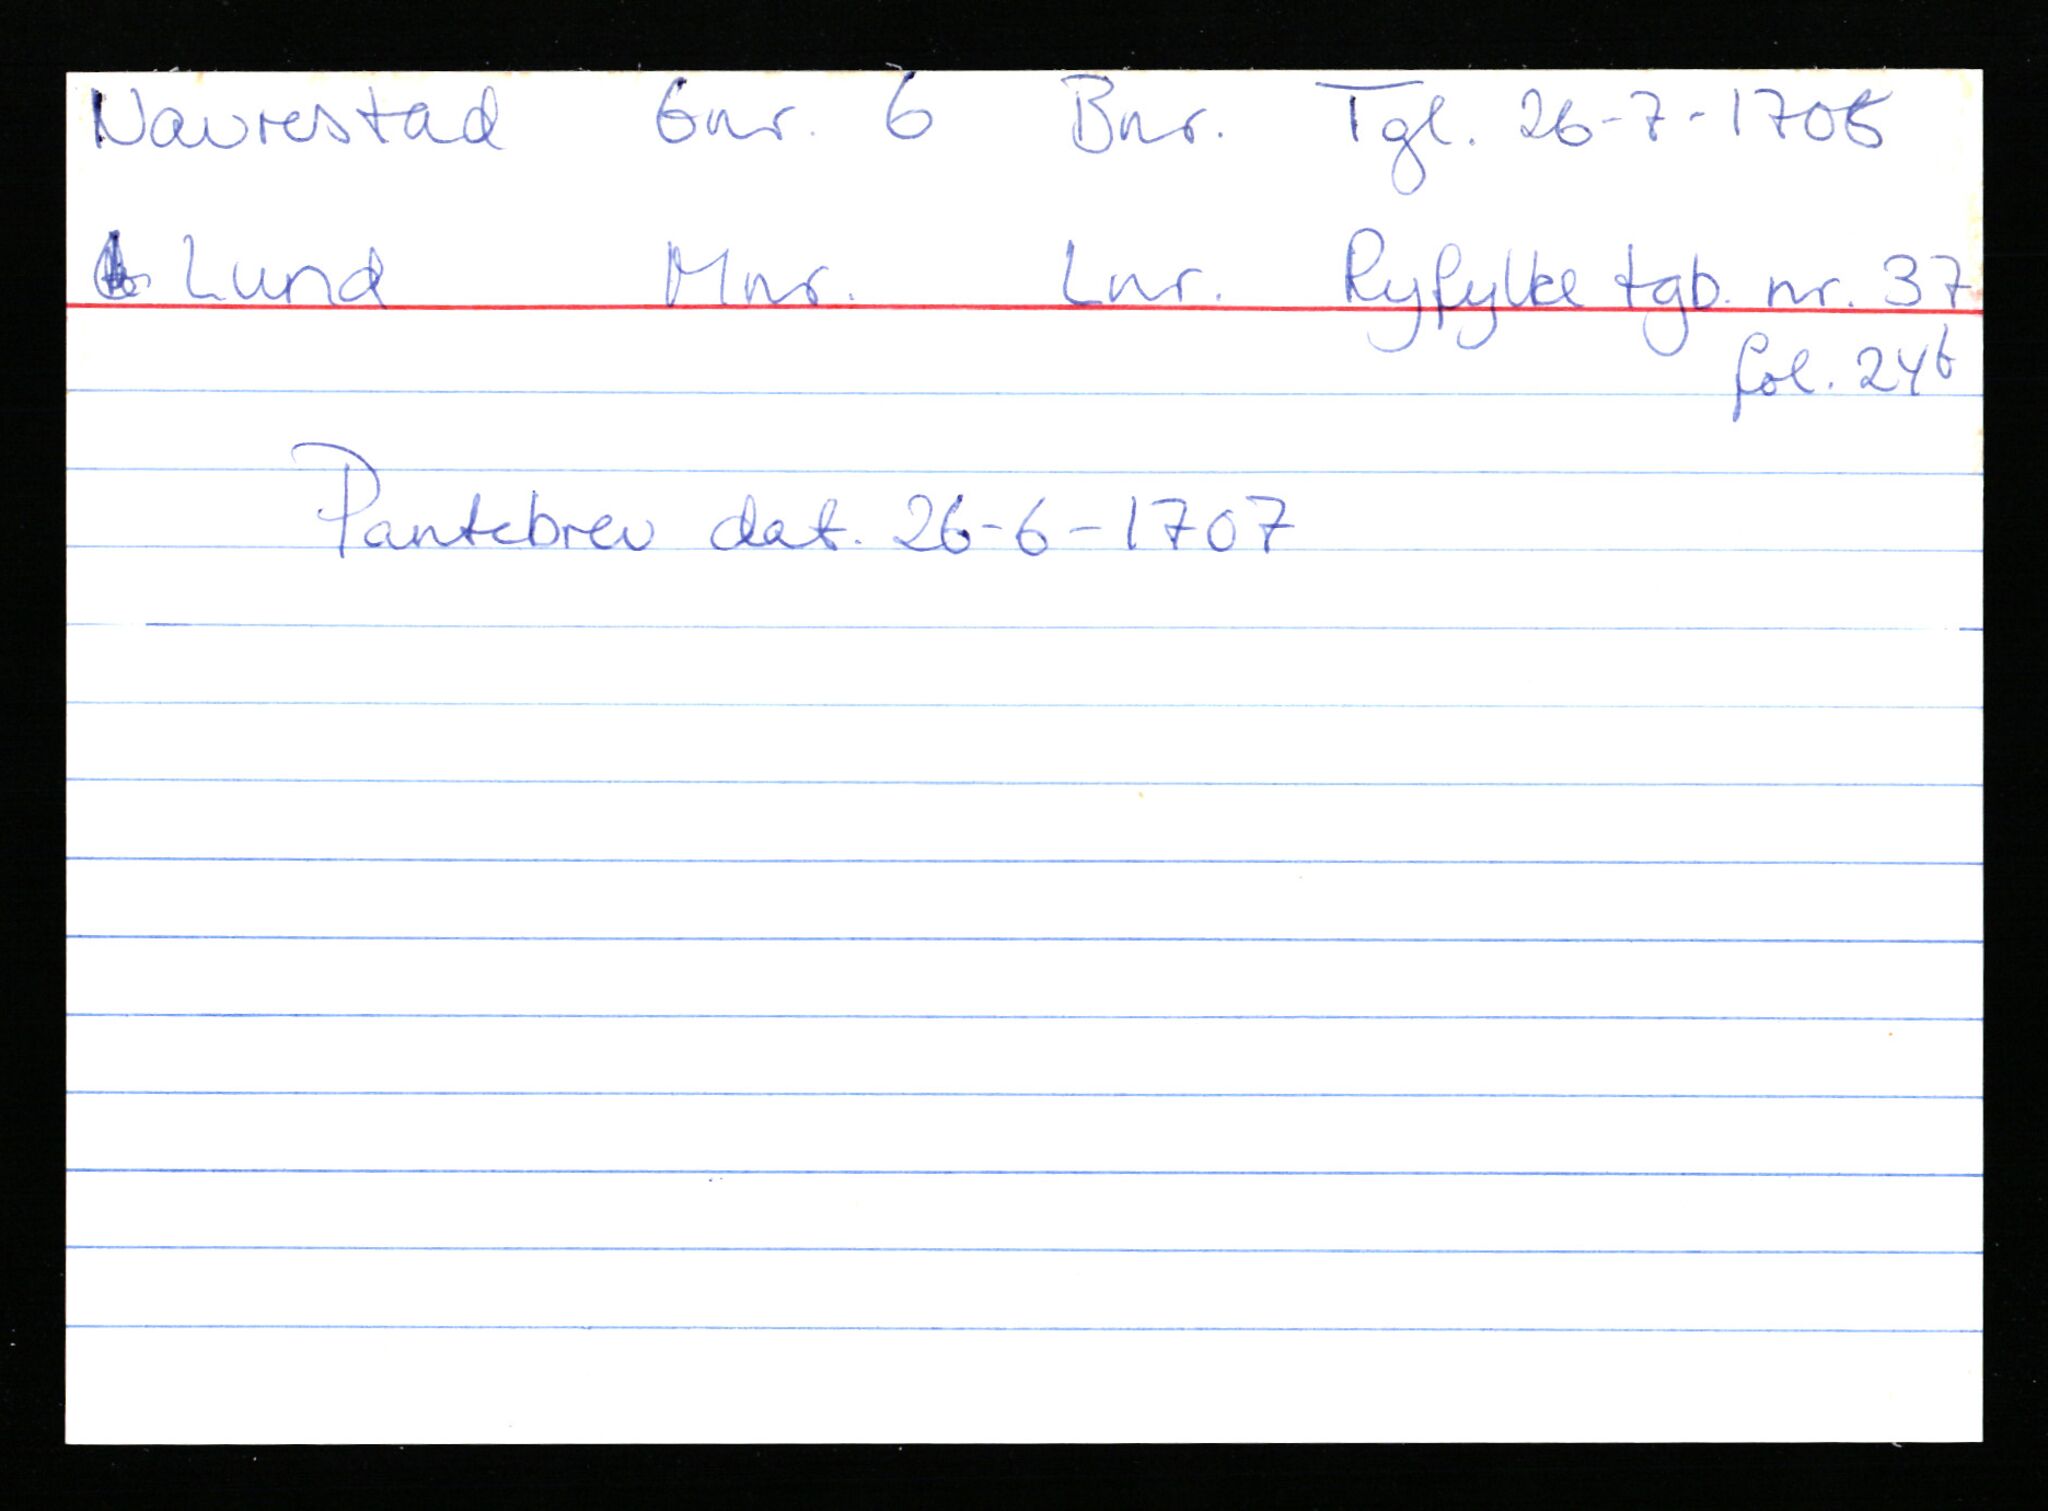 Navrestad Gnr. 6 Bnr. Tgl. 26-7-1706
Lund Mnr. Lnr. Ryfylke tgb. nr. 37
fol. 24b
Pantebrev dat. 26-6-1707